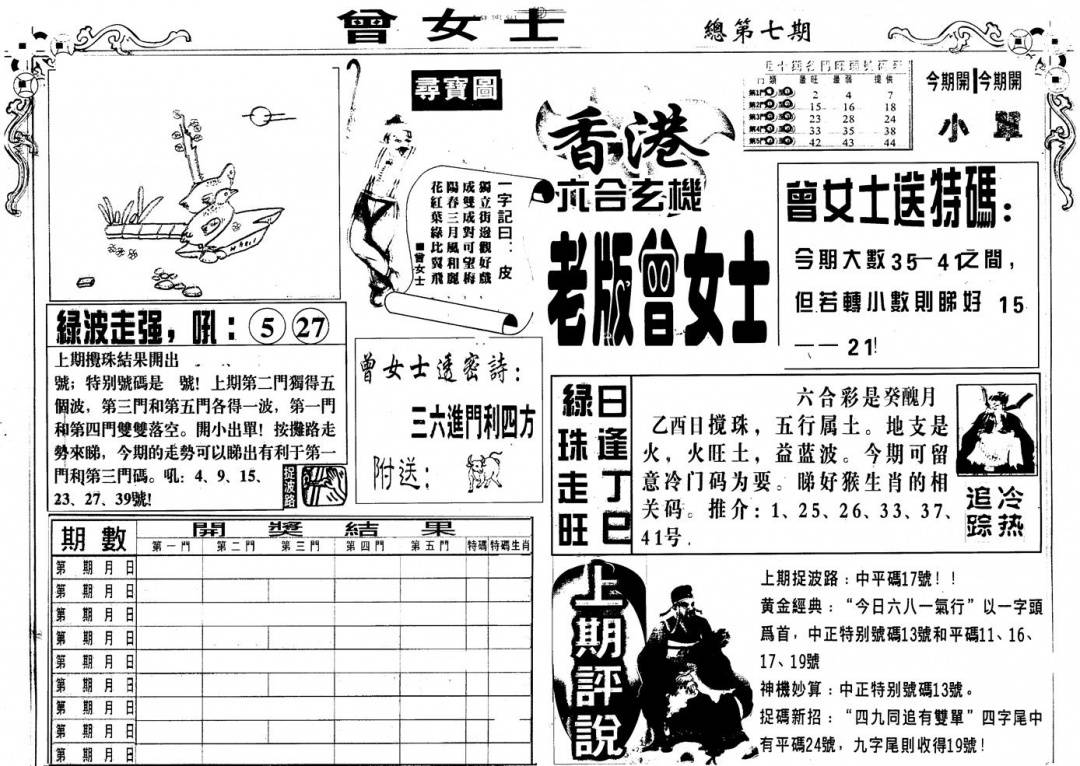 曾女士
總第七期
尋寶圖
一字記曰：皮
獨立街邊觀好戲
成雙成對可望梅
陽春三月風和麗
花紅葉綠比翼飛
■曾女士
香港
六合玄機
老版曾女士
門類 最旺 最弱 提供
第1門 2 4 7
第2門 15 16 18
第3門 23 28 24
第4門 33 35 38
第5門 42 43 44
今期開 今期開
小 單
曾女士送特碼：
今期大數35—41之間，
但若轉小數則睇好 15
——21!
綠波走强，吼：5 27
上期攪珠結果開出
號；特別號碼是 號！上期第二門獨得五
個波，第三門和第五門各得一波，第一門
和第四門雙雙落空。開小出單！按攤路走
勢來睇，今期的走勢可以睇出有利于第一
門和第三門碼。吼：4、9、15、
23、27、39號!
捉波路
曾女士透密詩：
三六進門利四方
附送：
日逢丁巳
綠珠走旺
六合彩是癸醜月
乙酉日搅珠，五行属土。地支是
火，火旺土，益蓝波。今期可留
意冷门码为要。睇好猴生肖的相
关码。推介：1、25、26、33、37、
41号.
冷热
追踪
期數 開獎結果
第一門 第二門 第三門 第四門 第五門 特碼 特碼生肖
第 期 月 日
第 期 月 日
第 期 月 日
第 期 月 日
第 期 月 日
第 期 月 日
第 期 月 日
第 期 月 日
第 期 月 日
上期評說
上期捉波路：中平碼17號！！
黄金經典：“今日六八一氣行”以一字頭
爲首，中正特別號碼13號和平碼11、16、
17、19號
神機妙算：中正特別號碼13號。
捉碼新招：“四九同追有雙單”四字尾中
有平碼24號，九字尾則收得19號！